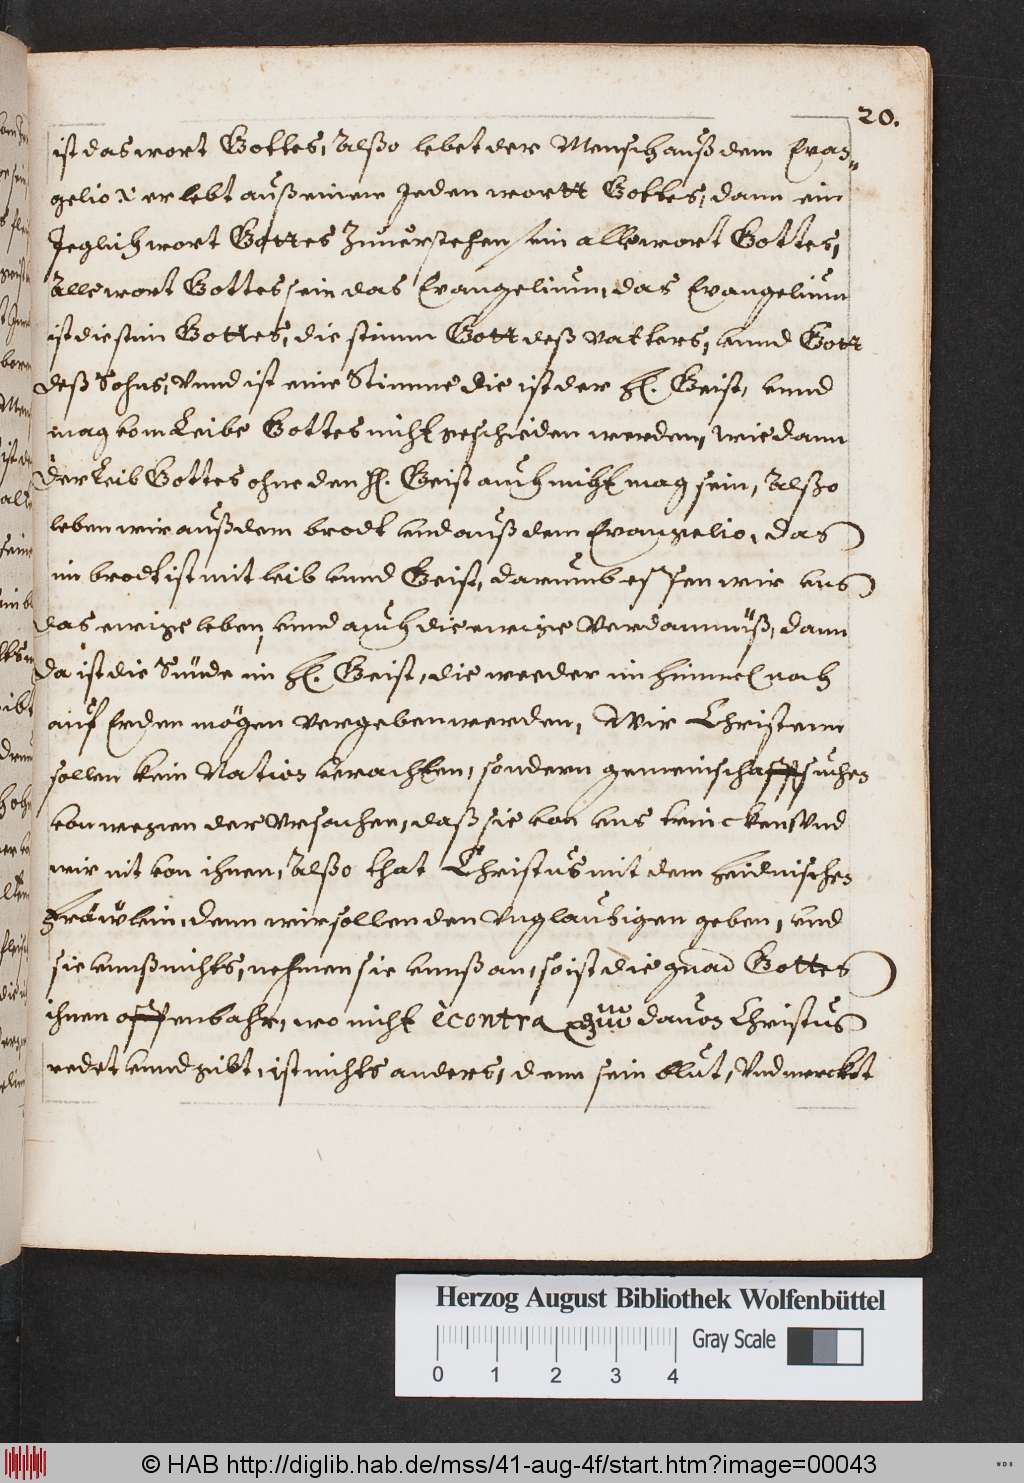 20.
ist das wort Gottes, Alßo lebet der Mensch auß dem Evan„
gelio .i. er lebt auß einem Jeden wortt Gottes, dann ein
Jeglich wort Gottes Zuuerstehen sein alle wort Gottes,
Alle wort Gottes sein das Evangelium, das Evangelium
ist die stim Gottes, die stimm Gott deß Vatters, vnnd Gott
deß Sohns, Vnnd ist eine Stimme die ist der H. Geist, vnnd
mag vom Leibe Gottes nicht geschieden werden, wie dann
der Leib Gottes ohne den H. Geist auch nicht mag sein, Alßo
leben wir auß dem brodt vnd auß dem Evangelio, das
im brodt ist mit leib vnnd Geist, darumb essen wir vns
das ewige leben, vnnd auch die ewige Verdamnüß, dann
da ist die Sünde im H. Geist, die weeder im himmel noch
auf Erden mögen vergeben werden, Wir Christenn
sollen kein Nation verachten, sondern gemeinschafft suchen
von wegen der Vrsachen, daß sie von vns trincken, Vnd
wir nit von ihnen, Alßo that Christus mit dem heidnischen
fräwlein, denn wir sollen den Vnglaubigen geben, vnd
sie vnnß nichts, nehmen sie vnnß an, so ist die gnad Gottes
ihnen offenbahr, wo nicht ècontra dauon Christus
redet vnnd gibt, ist nichts anders, denn sein blut, Vnd merckt
Herzog August Bibliothek Wolfenbüttel
Gray Scale
0 1 2 3 4
© HAB http://diglib.hab.de/mss/41-aug-4f/start.htm?image=00043